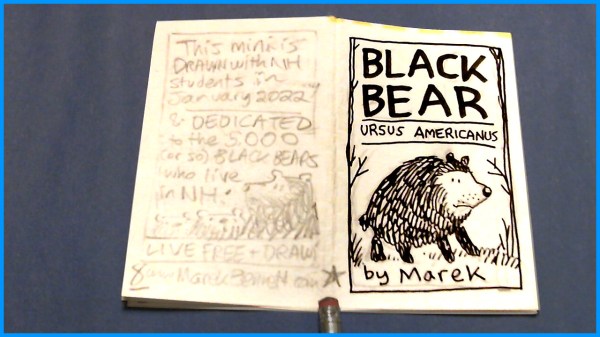 This mini is
DRAWN with NH
students in
January 2022
& DEDICATED
to the 5,000
(or so) BLACK BEARS
who live
in NH.
LIVE FREE + DRAW!
8
MarekBennett.com
BLACK
BEAR
URSUS AMERICANUS
by Marek